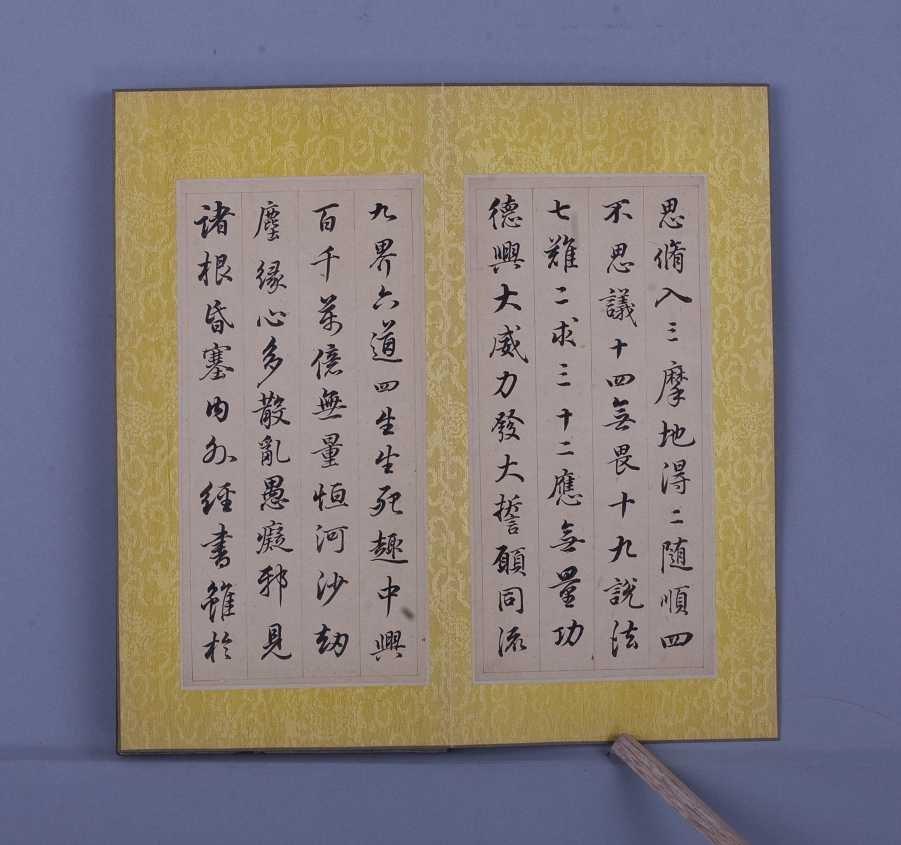 思脩入三摩地得二随順四
不思議十四無畏十九說法
七難二求三十二應無量功
德興大威力發大誓願同流
九界六道四生生死趣中興
百千萬億無量恒河沙劫
塵緣心多散亂愚癡邪見
諸根昏塞内外經書雖於